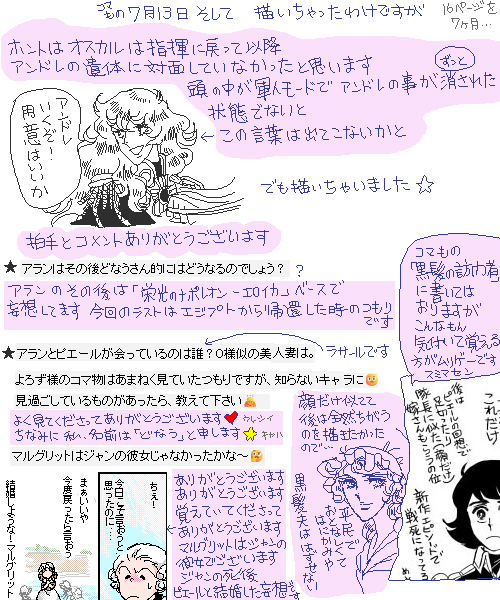 その7月13日 そして 描いちゃったわけですが
16ページを
7ヶ月…
ホントは オスカルは指揮に戻って以降
アンドレの遺体に対面していなかったと思います
頭の中が軍人モードで アンドレの事が ずっと 消された
状態でないと
← この言葉は出てこないかと
アンドレ
いくぞ!
用意はいいか
でも描いちゃいました☆
拍手とコメントありがとうございます
★ アランはその後どなうさん的にはどうなるのでしょう? ?
アランのその後は「栄光のナポレオン-エロイカ」ベースで
妄想してます 今回のラストはエジプトから帰還した時のつもり
です
★アランとピエールが会っているのは誰?O様似の美人妻は。
ラサールです
よろず様のコマ物はあまねく見ていたつもりですが、知らないキャラに
見過ごしているものがあったら、教えて下さい
よく見てくださってありがとうございます ウレシイ
ちなみに 私、名前は「どなう」と申します キャハ
マルグリットはジャンの彼女じゃなかったかな~
ありがとうございます
ありがとうございます
覚えていてくださって
ありがとうございます
マルグリットはジャンの
彼女でございます
ジャンの死後
ピエールと結婚した妄想
コマもの
「黒髪の訪問者」
に書いては
おりますが
こんなもん
気付いて覚える
方がムリゲーです
スミマセン
顔だけ似てて
後は全然ちがう
のを描きたかった
ので…
平民で
おとなしくて
黒髪夫はは
これだけ
後は
隊長に似た
嫁さんも
新作エピソードで
戦死になってる
ちぇー
今日こそ言おうと
思ったのに…
まぁいいや
今度戻ったら言おう
結婚しような マルグリット